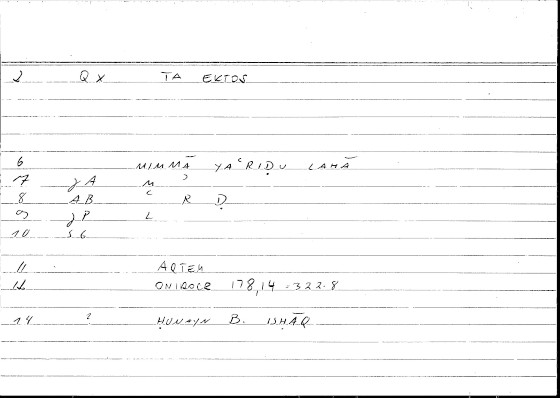 2 QX TA EKTOS
6 MIMMĀ YAʿRIḌU LAHĀ
7 γA M ʾ
8 AB ʿ R Ḍ
9 γP L
10 S6
11 ARTEM
12 ONIROCR 178,14-322.8
14 ? ḤUNAYN B. ISḤĀQ